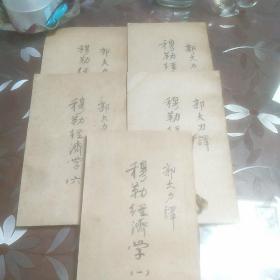 郭大力譯
穆勒经
郭大力
穆勒经
郭大力
穆勒經濟学(六)
郭大力譯
穆勒
郭大力譯
穆勒經濟学(一)